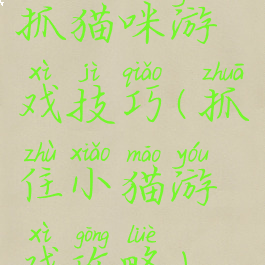 抓猫咪游
xì jì qiǎo zhuā
戏技巧(抓
zhù xiǎo māo yóu
住小猫游
xì gōng lüè
戏攻略)